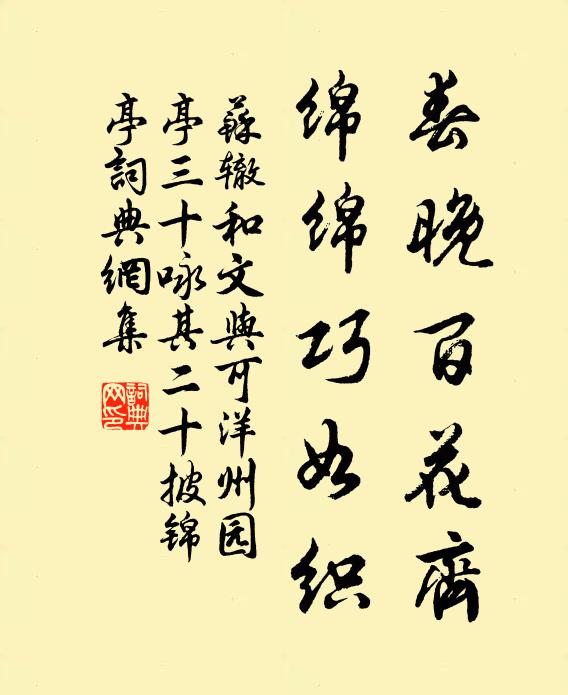 春晚百花齊
绵绵巧如织
蘇辙和文與可洋州园
亭三十咏其二十披锦
亭詞典網集
詞典网印